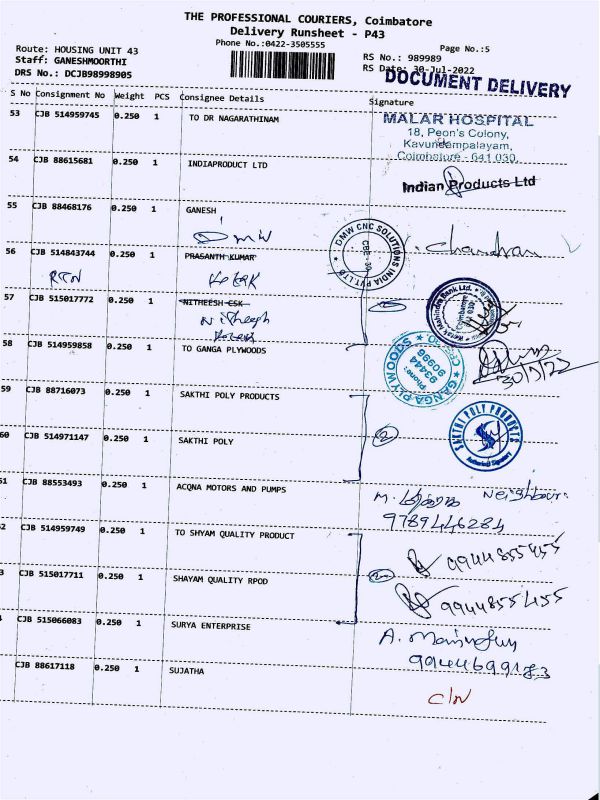 THE PROFESSIONAL COURIERS, Coimbatore
Delivery Runsheet - P43
Phone No.:0422-3505555
Page No.:5
Route: HOUSING UNIT 43
Staff: GANESHMOORTHI
DRS No.: DCJB98998905
RS No.: 989989
RS Date: 30-Jul-2022
DOCUMENT DELIVERY
S No Consignment No Weight PCS Consignee Details Signature
53 CJB 514959745 0.250 1 TO DR NAGARATHINAM
MALAR HOSPITAL
18, Peon's Colony,
Kavundampalayam,
Coimbatore - 641 030.
54 CJB 88615681 0.250 1 INDIAPRODUCT LTD
Indian Products Ltd
55 CJB 88468176 0.250 1 GANESH
DMW
DMW CNC SOLUTIONS INDIA PVT.LTD
CBE - 30
Chandran
56 CJB 514843744 0.250 1 PRASANTH KUMAR
RTN
Kotak
57 CJB 515017772 0.250 1 NITHEESH CSK
Nitheesh
Kotak
Kotak Mahindra Bank Ltd.
Coimbatore
58 CJB 514959858 0.250 1 TO GANGA PLYWOODS
GANGA PLYWOODS
Phone:
93444
90996
30/7/22
59 CJB 88716073 0.250 1 SAKTHI POLY PRODUCTS
60 CJB 514971147 0.250 1 SAKTHI POLY
2
SAKTHI POLY PRODUCTS
Authorised Signatory
51 CJB 88553493 0.250 1 ACQNA MOTORS AND PUMPS
M.
Neighbour.
9789446284
2 CJB 514959749 0.250 1 TO SHYAM QUALITY PRODUCT
9944855455
3 CJB 515017711 0.250 1 SHAYAM QUALITY RPOD
2
9944855455
CJB 515066083 0.250 1 SURYA ENTERPRISE
A.
9944699183
CJB 88617118 0.250 1 SUJATHA
C/N